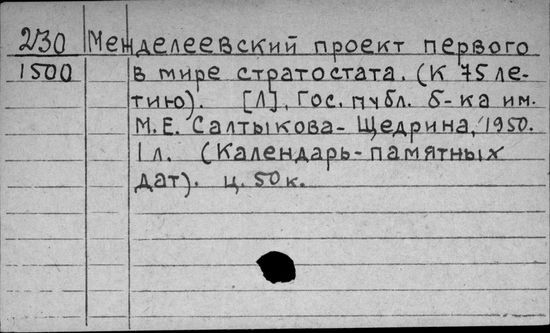 230 Менделеевский проект первого
1500 в мире стратостата. (К 75 ле-
тию). [Л], Гос. публ. б-ка им.
М.Е. Салтыкова-Щедрина, 1950.
1 л. (Календарь-памятных
дат). ц. 50 к.